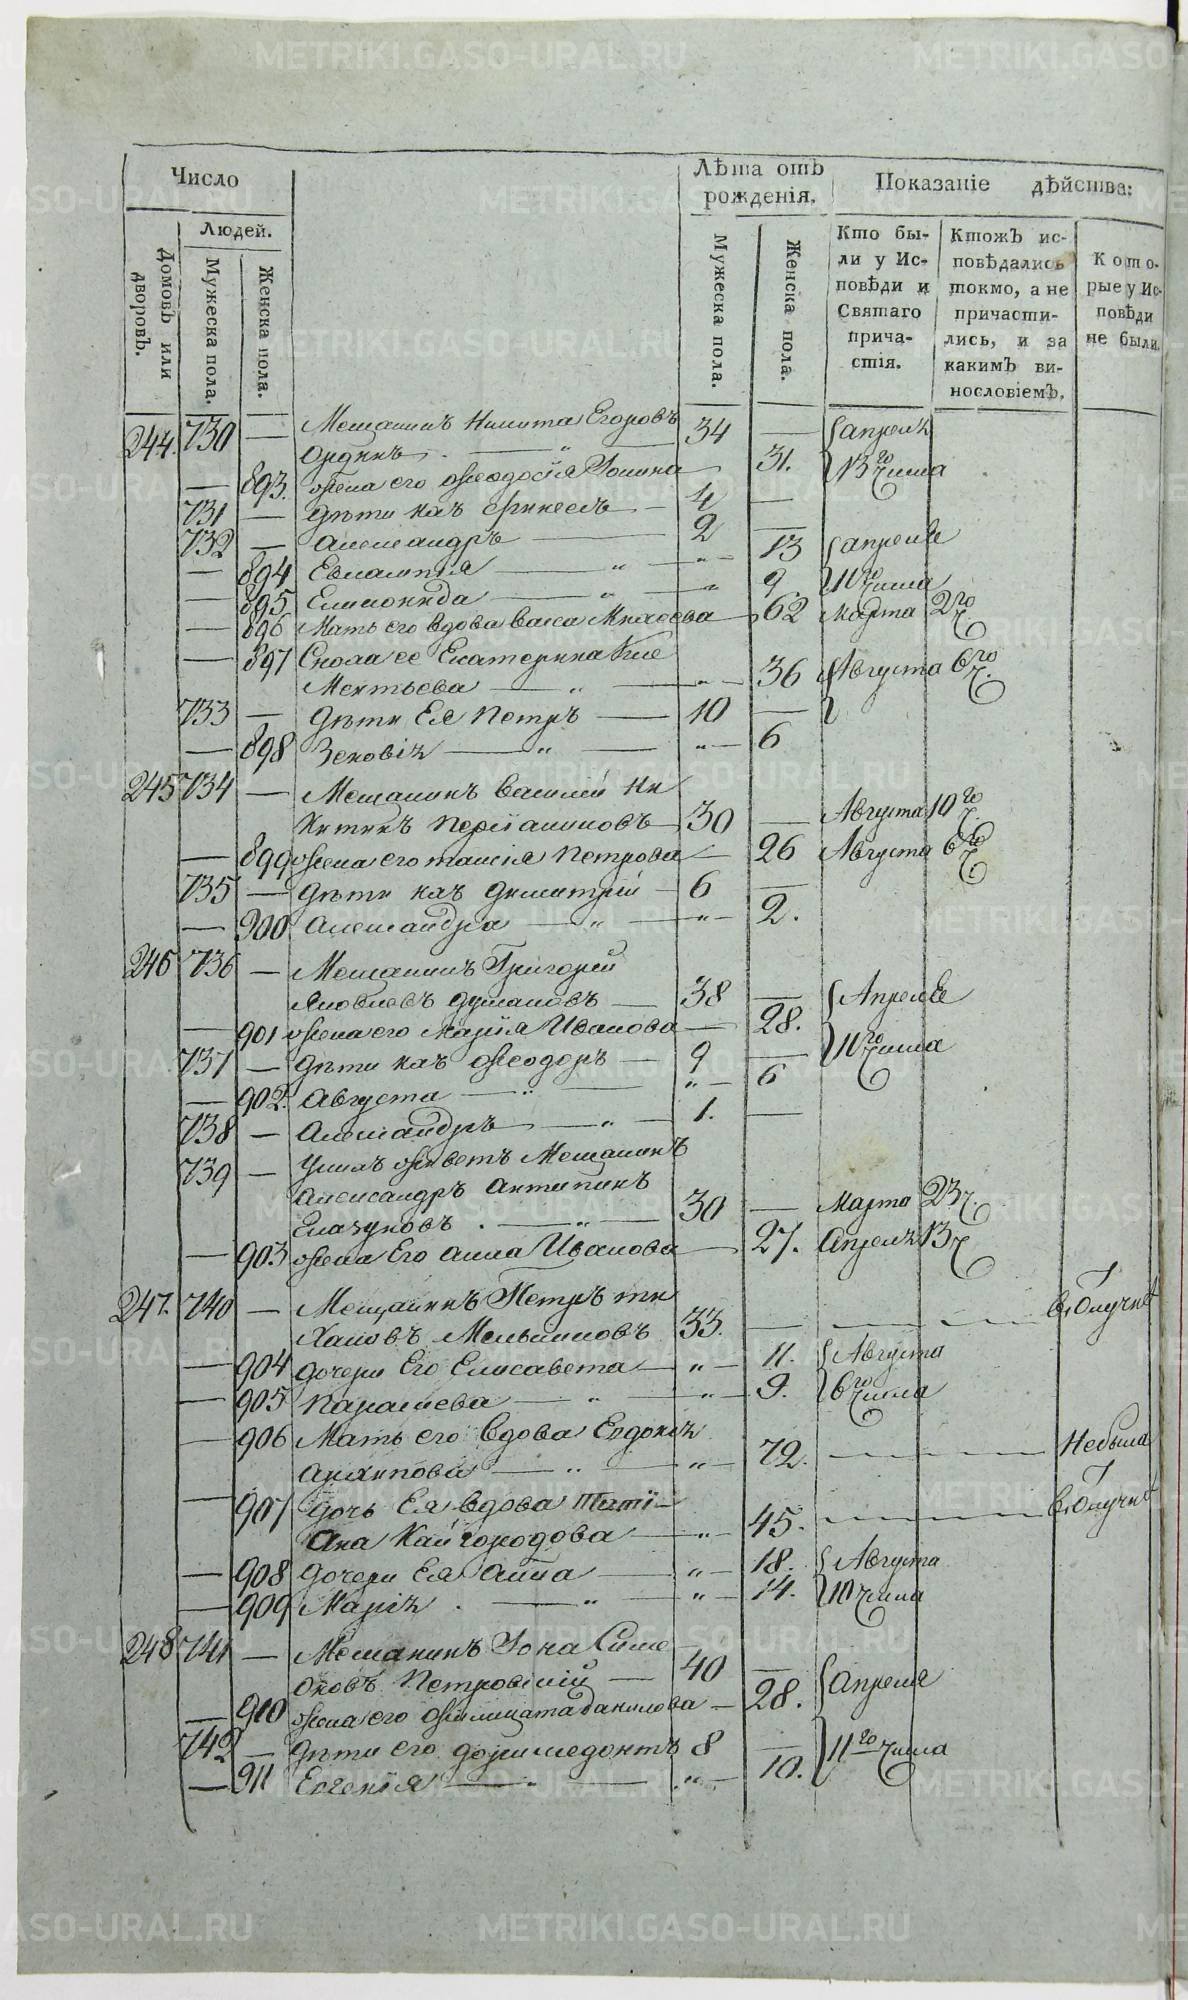 Число
Лѣта отъ рожденія.
Показаніе дѣйства:
Людей.
Домовъ или дворовъ.
Мужеска пола.
Женска пола.
Мужеска пола.
Женска пола.
Кто были у Исповѣди и Святаго причастія.
Ктожъ исповѣдались токмо, а не причастились, и за какимъ винословіемъ.
Которые у Исповѣди не были.
244. 730 — Мещанинъ Никита Егоровъ
34 — Апреля
— 893. жена его Ѳеодосія 31. 13го числа
731 — дѣти ихъ 4 —
732 — Александръ 2 —
— 894 Евлампія „ 13 Апреля
— 895 „ 9 11го числа
— 896 Мать его вдова 62 Марта 2го ч.
— 897 Сноха ее Екатерина Кле
Ментьева „ 36 Августа 6го ч.
733 — дѣти Ея Петръ 10 —
— 898 „ 6
245 734 — Мещанинъ Василей Ни
Китинъ 30 — Августа 10го ч.
— 899 жена его Петрова — 26 Августа 6го ч.
735 — дѣти ихъ Димитрій 6 —
— 900 Александра „ 2.
246 736 — Мещанинъ Григорей
Яковлевъ 38 — Апреля
— 901 жена его Марія Иванова — 28. 11го числа
737 — дѣти ихъ Ѳеодоръ 9 —
— 902. Августа „ 6
738 — Александръ „ 1. —
739 — У нихъ живетъ Мещанинъ
Александръ Антипинъ
30 — Марта 23 ч.
— 903 жена Его Анна Иванова — 27. Апреля 13 ч
247. 740 — Мещанинъ Петръ ти
Хановъ Мельниковъ 33. — въ отлучкѣ
— 904 дочери Его Елисавета „ 11. Августа
— 905 Параскева „ 9. 6го числа
— 906 Мать его Вдова Евдокія
Архипова „ 72. Небыла
— 907 дочь Ея вдова Тати
Ана Кайгородова „ 45. въ отлучкѣ
— 908 дочери Ея Анна „ 18. Августа
— 909 Марія „ 14. 10 числа
248 741 — Мещанинъ Іона Симе
Оновъ Петровскій 40 — Апреля
— 910 жена его Данилова — 28.
742 — дѣти его 8 — 11го числа
— 911 Евгенія „ 10.
METRIKI.GASO-URAL.RU